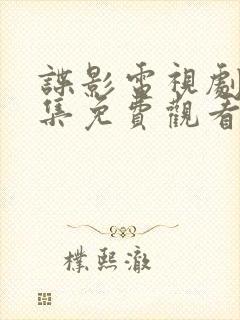 諜影雷視劇
集免費觀看
樸熙澈